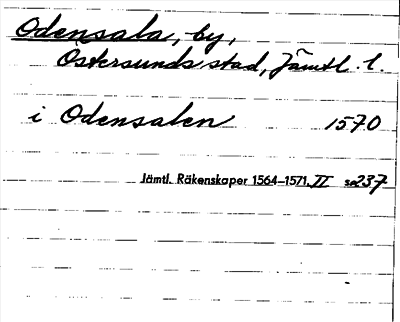 Odensala, by,
Östersunds stad, Jämtl. l.
i Odensalen 1570
Jämtl. Räkenskaper 1564–1571. II s. 237